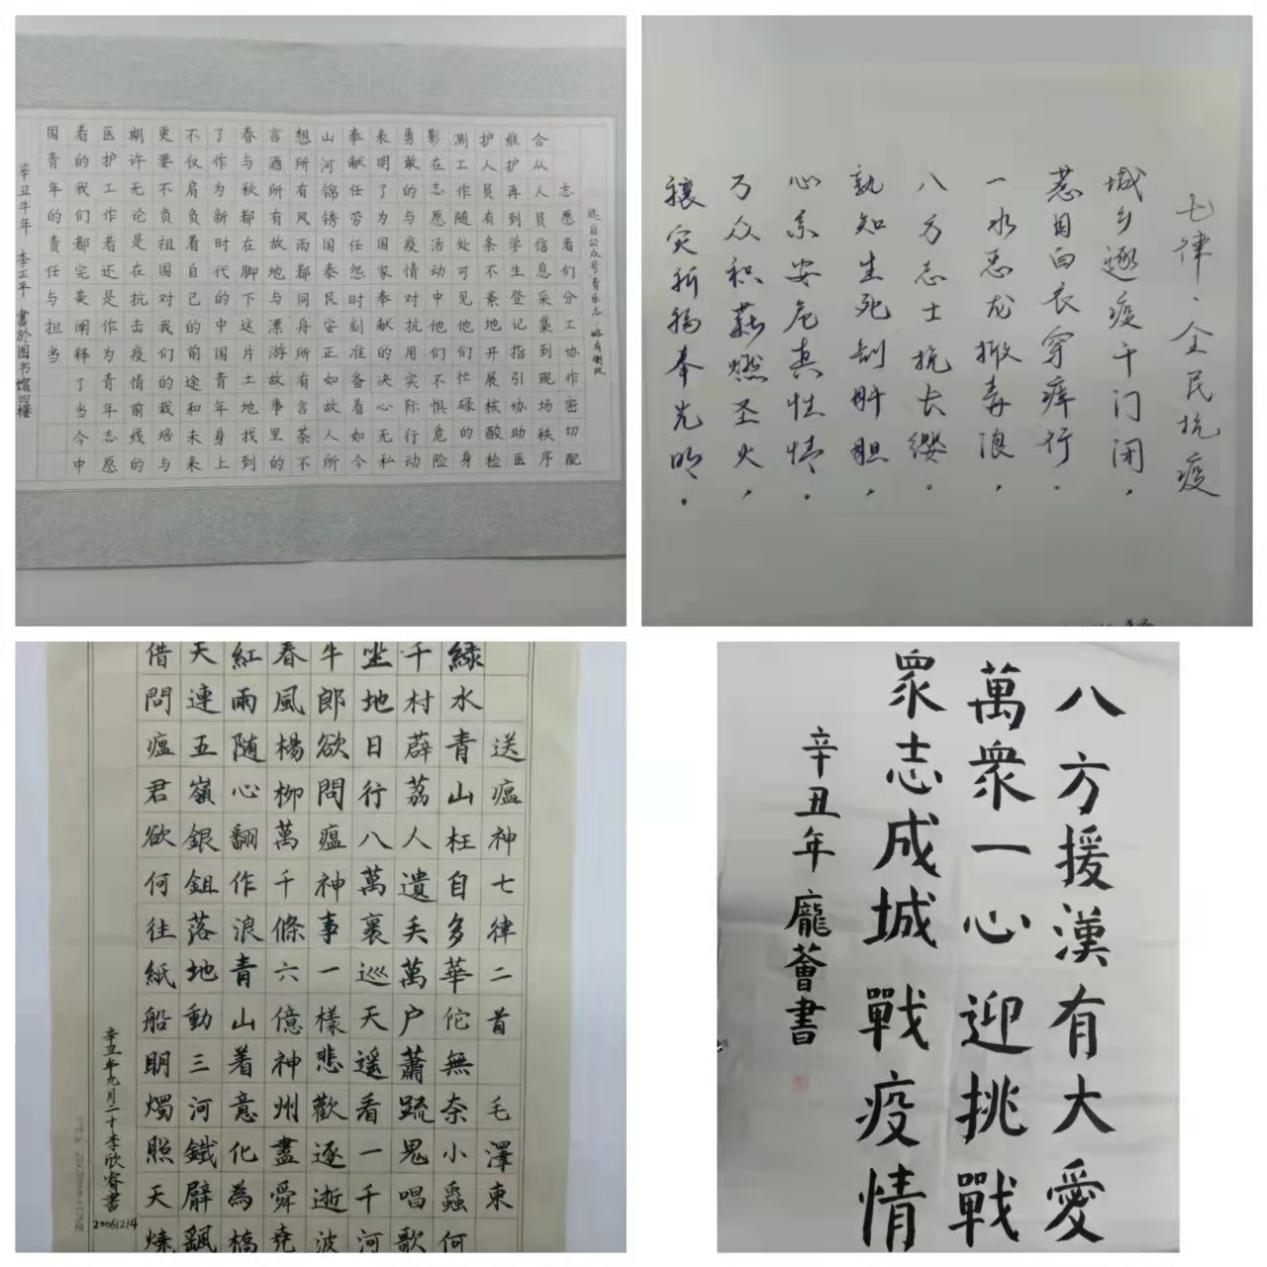 选自公众号"青乐志"略有删改
志愿者们分工协作密切配
合从人员信息采集到现场秩序
维护再到学生登记指引协助医
护人员有条不紊地开展核酸检
测工作随处可见他们忙碌的身
影在志愿活动中他们不惧危险
勇敢的与疫情对抗用实际行动
表明了为国家奉献的决心无私
奉献任劳任怨时刻准备着如今
山河锦绣国泰民安正如故人所
想所有风雨都同舟所有言茶不
言酒所有故地与漂游故事里的
春与秋都在脚下这片土地找到
了作为新时代的中国青年身上
不仅肩负着自己的前途和未来
更要不负祖国对我们的栽培与
期许无论是在抗击疫情前线的
医护工作者还是作为青年志愿
者的我们都完美阐释了当今中
国青年的责任与担当
辛丑牛年 李正平 書於图书馆四樓
七律·全民抗疫
城乡遞疫千门闭，
惹目白衣穿瘴行。
一水恶龙掀毒浪，
八方志士抗长缨。
孰知生死刮肝胆，
心系安危真性情。
万众积薪燃圣火，
禳灾祈福奉光明。
送瘟神七律二首 毛澤東
緑水青山枉自多華佗無奈小蟲何
千村薜荔人遺矢萬户蕭疏鬼唱歌
坐地日行八萬裏巡天遥看一千河
牛郎欲問瘟神事一樣悲歡逐逝波
春風楊柳萬千條六億神州盡舜堯
紅雨随心翻作浪青山着意化為橋
天連五嶺銀鋤落地動三河鐵臂飖
借問瘟君欲何往紙船明燭照天燒
辛丑年九月二十李欣睿書
20061214
八方援漢有大愛
萬衆一心迎挑戰
衆志成城戰疫情
辛丑年龐薈書